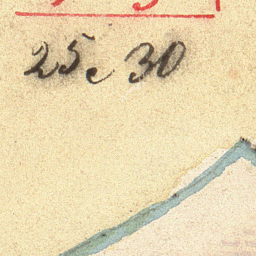 25 e 30